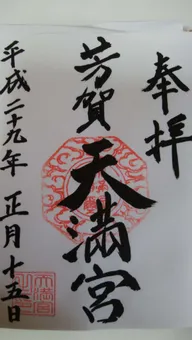 奉拝
芳賀天満宮
平成二十九年 正月十五日